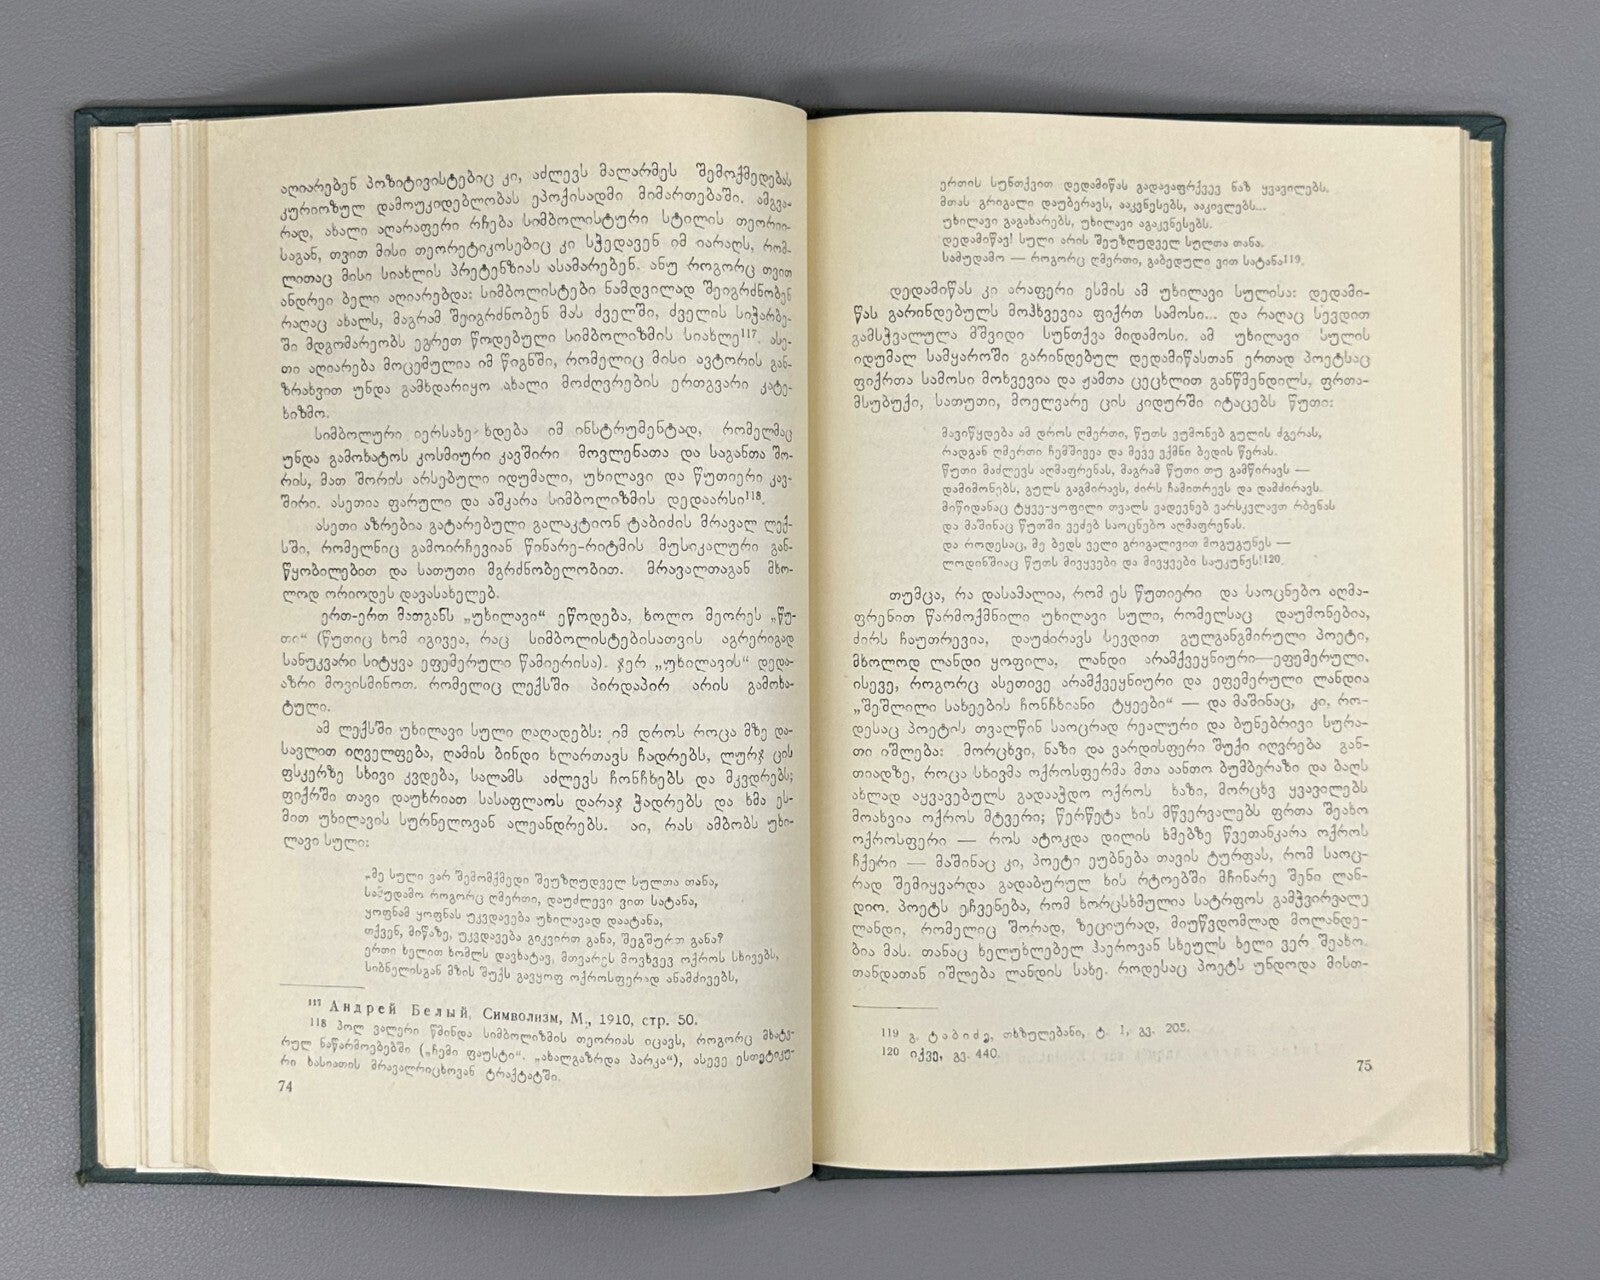 აღიარებენ პოზიტივისტებიც კი, აძლევს მალარმეს შემოქმედებას
კურიოზულ დამოუკიდებლობას ეპოქისადმი მიმართებაში. ამგვა-
რად, ახალი აღარაფერი რჩება სიმბოლისტური სტილის თეორიი-
საგან, თვით მისი თეორეტიკოსებიც კი სჭედავენ იმ იარაღს, რომ-
ლითაც მისი სიახლის პრეტენზიას ასამარებენ. ანუ როგორც თვით
ანდრეი ბელი აღიარებდა: სიმბოლისტები ნამდვილად შეიგრძნობენ
რაღაც ახალს, მაგრამ შეიგრძნობენ მას ძველში, ძველის სიჭარბე-
ში მდგომარეობს ეგრეთ წოდებული სიმბოლიზმის სიახლე117. ასე-
თი აღიარება მოცემულია იმ წიგნში, რომელიც მისი ავტორის გან-
ზრახვით უნდა გამხდარიყო ახალი მოძღვრების ერთგვარი კატე-
ხიზმო.
სიმბოლური იერსახე ხდება იმ ინსტრუმენტად, რომელმაც
უნდა გამოხატოს კოსმიური კავშირი მოვლენათა და საგანთა შო-
რის, მათ შორის არსებული იდუმალი, უხილავი და წუთიერი კავ-
შირი. ასეთია ფარული და აშკარა სიმბოლიზმის დედაარსი118.
ასეთი აზრებია გატარებული გალაკტიონ ტაბიძის მრავალ ლექ-
სში, რომელნიც გამოირჩევიან წინარე-რიტმის მუსიკალური გან-
წყობილებით და სათუთი მგრძნობელობით. მრავალთაგან მხო-
ლოდ ორიოდეს დავასახელებ.
ერთ-ერთ მათგანს „უხილავი“ ეწოდება, ხოლო მეორეს „წუ-
თი“ (წუთიც ხომ იგივეა, რაც სიმბოლისტებისათვის აგრერიგად
სანუკვარი სიტყვა ეფემერული წამიერისა). ჯერ „უხილავის“ დედა-
აზრი მოვისმინოთ. რომელიც ლექსში პირდაპირ არის გამოხა-
ტული.
ამ ლექსში უხილავი სული ღაღადებს: იმ დროს როცა მზე და-
სავლით იღველფება, ღამის ბინდი ხლართავს ჩადრებს, ლურჯ ცის
ფსკერზე სხივი კვდება, სალამს აძლევს ჩონჩხებს და მკვდრებს;
ფიქრში თავი დაუხრიათ სასაფლაოს დარაჯ ჭადრებს და ხმა ეს-
მით უხილავის სურნელოვან ალეანდრებს. აი, რას ამბობს უხი-
ლავი სული:
„მე სული ვარ შემომქმედი შეუზღუდველ სულთა თანა,
სამუდამო როგორც ღმერთი, დაუძლევი ვით სატანა,
ყოფნამ ყოფნას უკვდავება უხილავად დაატანა,
თქვენ, მიწაზე, უკვდავება გიკვირთ განა, შეგშურთ განა?
ერთი ხელით ხომლს დავხატავ, მთვარეს მოვხვევ ოქროს სხივებს,
სიბნელისგან მზის შუქს გავყოფ ოქროსფერად ანამძივებს,
117 Андрей Белый, Символизм, М., 1910, стр. 50.
118 პოლ ვალერი წმინდა სიმბოლიზმის თეორიას იცავს, როგორც მხატვ-
რულ ნაწარმოებებში („ჩემი ფაუსტი“. „ახალგაზრდა პარკა“), ასევე ესთეტიკუ-
რი ხასიათის მრავალრიცხოვან ტრაქტატში.
74
ერთის სუნთქვით დედამიწას გადავაფრქვევ ნაზ ყვავილებს.
მთას გრიგალი დაუბერავს, ააკვნესებს, ააკივლებს...
უხილავი გაგახარებს, უხილავი აგაკვნესებს.
დედამიწავ! სული არის შეუზღუდველ სულთა თანა.
სამუდამო — როგორც ღმერთი, გაბედული ვით სატანა119.
დედამიწას კი არაფერი ესმის ამ უხილავი სულისა: დედამი-
წას გარინდებულს მოჰხვევია ფიქრთ სამოსი... და რაღაც სევდით
გამსჭვალულა მშვიდი სუნთქვა მიდამოსი. ამ უხილავი სულის
იდუმალ სამყაროში გარინდებულ დედამიწასთან ერთად პოეტსაც
ფიქრთა სამოსი მოხვევია და ჟამთა ცეცხლით განწმენდილს, ფრთა-
მსუბუქი, სათუთი, მოელვარე ცის კიდურში იტაცებს წუთი:
მავიწყდება ამ დროს ღმერთი, წუთს ვუმონებ გულის ძგერას,
რადგან ღმერთი ჩემშივეა და მევე ვქმნი ბედის წერას.
წუთი მაძლევს აღმაფრენას, მაგრამ წუთი თუ გამწირავს —
დამიმონებს, გულს გაგმირავს, ძირს ჩამითრევს და დამძირავს.
მიწიდანაც ტყვე-ყოფილი თვალს ვადევნებ ვარსკვლავთ რბენას
და მაშინაც წუთში ვეძებ საოცნებო აღმაფრენას.
და როდესაც, მე ბედს ველი გრიგალივით მოგუგუნეს —
ლოდინშიაც წუთს მივყვები და მივყვები საუკუნეს!120.
თუმცა, რა დასამალია, რომ ეს წუთიერი და საოცნებო აღმა-
ფრენით წარმოქმნილი უხილავი სული, რომელსაც დაუმონებია,
ძირს ჩაუთრევია, დაუძირავს სევდით გულგანგმირული პოეტი,
მხოლოდ ლანდი ყოფილა, ლანდი არამქვეყნიური—ეფემერული.
ისევე, როგორც ასეთივე არამქვეყნიური და ეფემერული ლანდია
„შეშლილი სახეების ჩონჩხიანი ტყეები“ — და მაშინაც, კი, რო-
დესაც პოეტის თვალწინ საოცრად რეალური და ბუნებრივი სურა-
თი იშლება: მორცხვი, ნაზი და ვარდისფერი შუქი იღვრება გან-
თიადზე, როცა სხივმა ოქროსფერმა მთა აანთო ბუმბერაზი და ბაღს
ახლად აყვავებულს გადააჭდო ოქროს ხაზი, მორცხვ ყვავილებს
მოახვია ოქროს მტვერი; წერწეტა ხის მწვერვალებს ფრთა შეახო
ოქროსფერი — როს ატოკდა დილის ხმებზე წვეთანკარა ოქროს
ჩქერი — მაშინაც კი, პოეტი ეუბნება თავის ტურფას, რომ საოც-
რად შემიყვარდა გადაბურულ ხის რტოებში მჩინარე შენი ლან-
დიო. პოეტს ეჩვენება, რომ ხორცსხმულია სატრფოს გამჭვირვალე
ლანდი, რომელიც შორად, ზეციურად, მიუწვდომლად მოლანდე-
ბია მას. თანაც ხელუხლებელ ჰაეროვან სხეულს ხელი ვერ შეახო.
თანდათან იშლება ლანდის სახე. როდესაც პოეტს უნდოდა მისთ-
119 გ. ტაბიძე, თხზულებანი, ტ. 1, გვ. 205.
120 იქვე, გვ. 440.
75